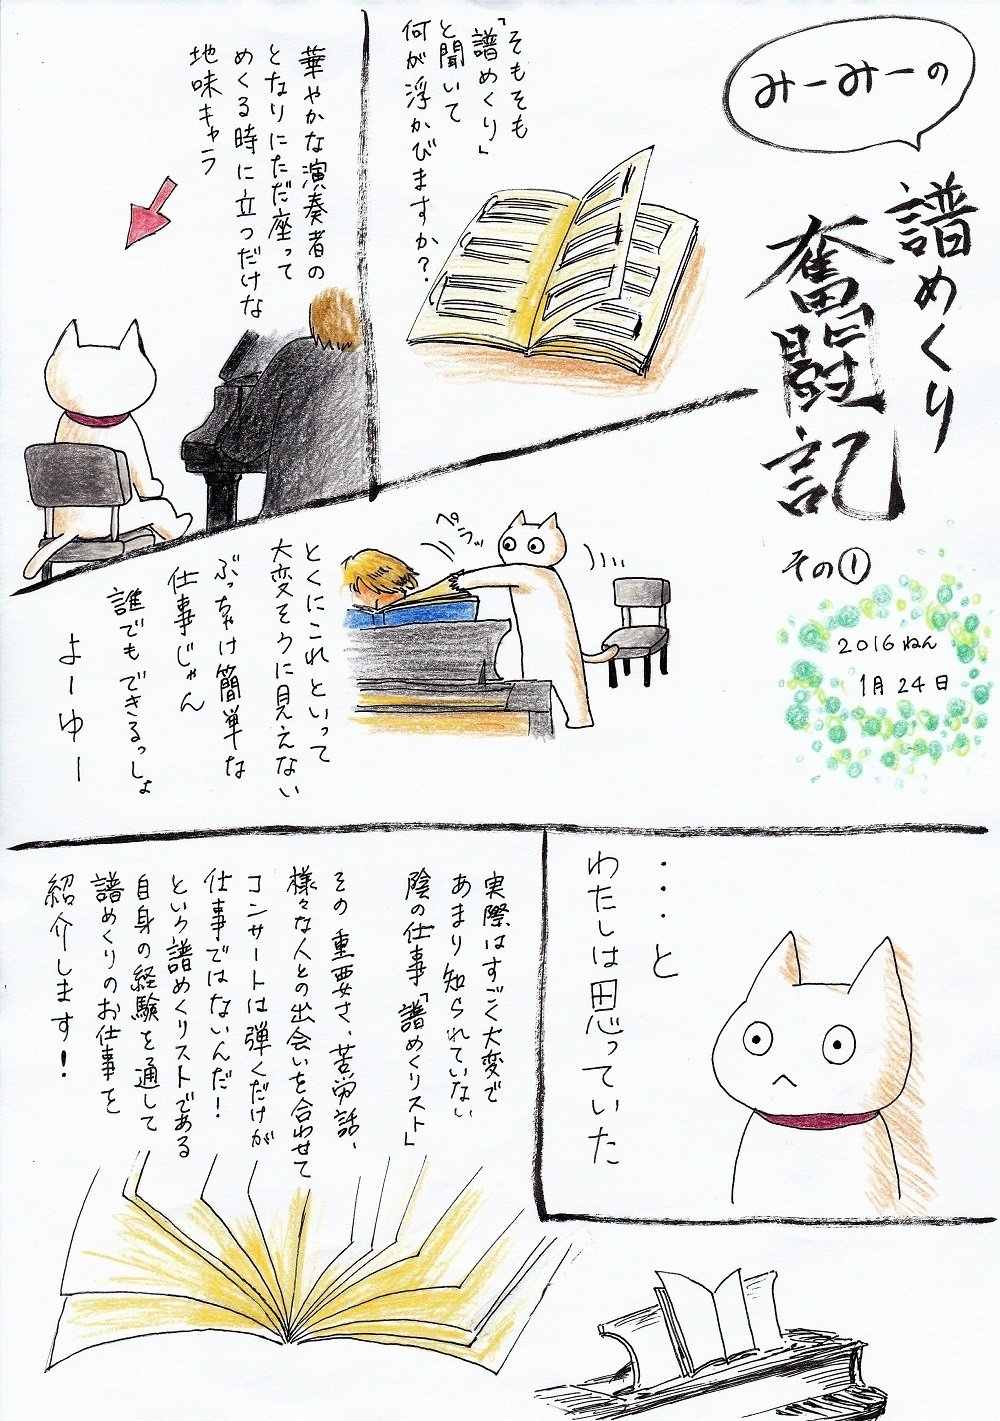 みーみーの
譜めくり
奮闘記
その①
2016ねん
1月24日
「そもそも
「譜めくり」
と聞いて
何が浮かびますか？
華やかな演奏者の
となりにただ座って
めくる時に立つだけな
地味キャラ
ペラッ
とくにこれといって
大変そうに見えない
ぶっちゃけ簡単な
仕事じゃん
誰でもできるっしょ
よーゆー
・・・と
わたしは思っていた
実際はすごく大変で
あまり知られていない
陰の仕事「譜めくリスト」
その重要さ、苦労話、
様々な人との出会いを合わせて
コンサートは弾くだけが
仕事ではないんだ！
という譜めくリストである
自身の経験を通して
譜めくりのお仕事を
紹介します！